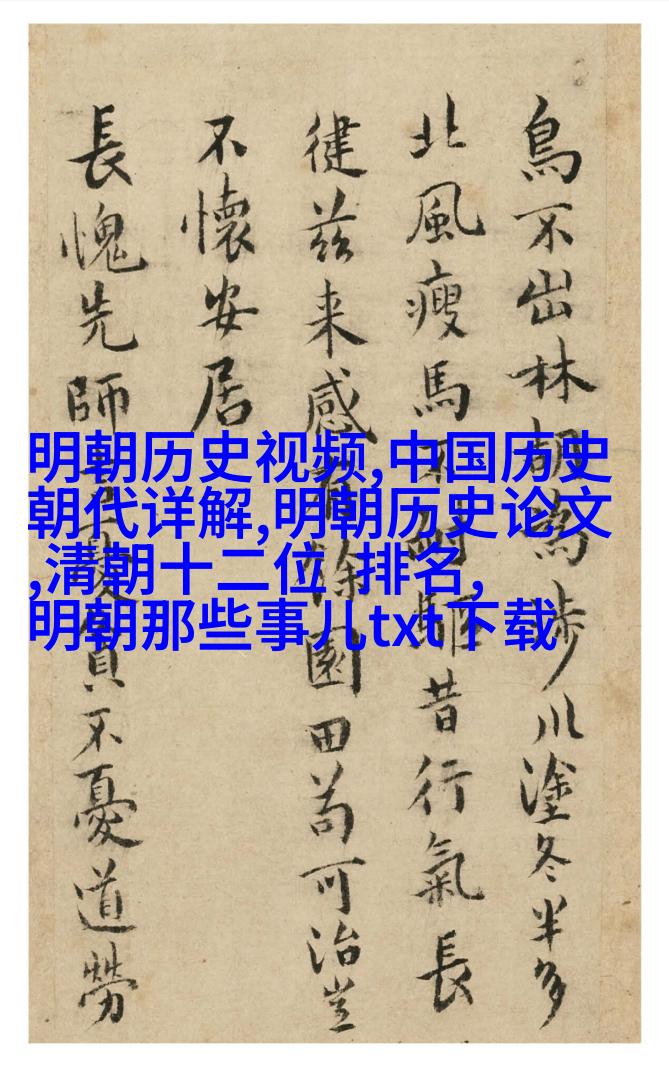 鳥不出林胡為步川塗冬半多
北風瘦馬不耐駈昔行氣長
徤兹来感園田苟可治豈
不懷安居
長愧先師貧不憂道勞
明朝历史视频,中国历史
朝代详解,明朝历史论文
,清朝十二位 排名,
明朝那些事儿txt下载